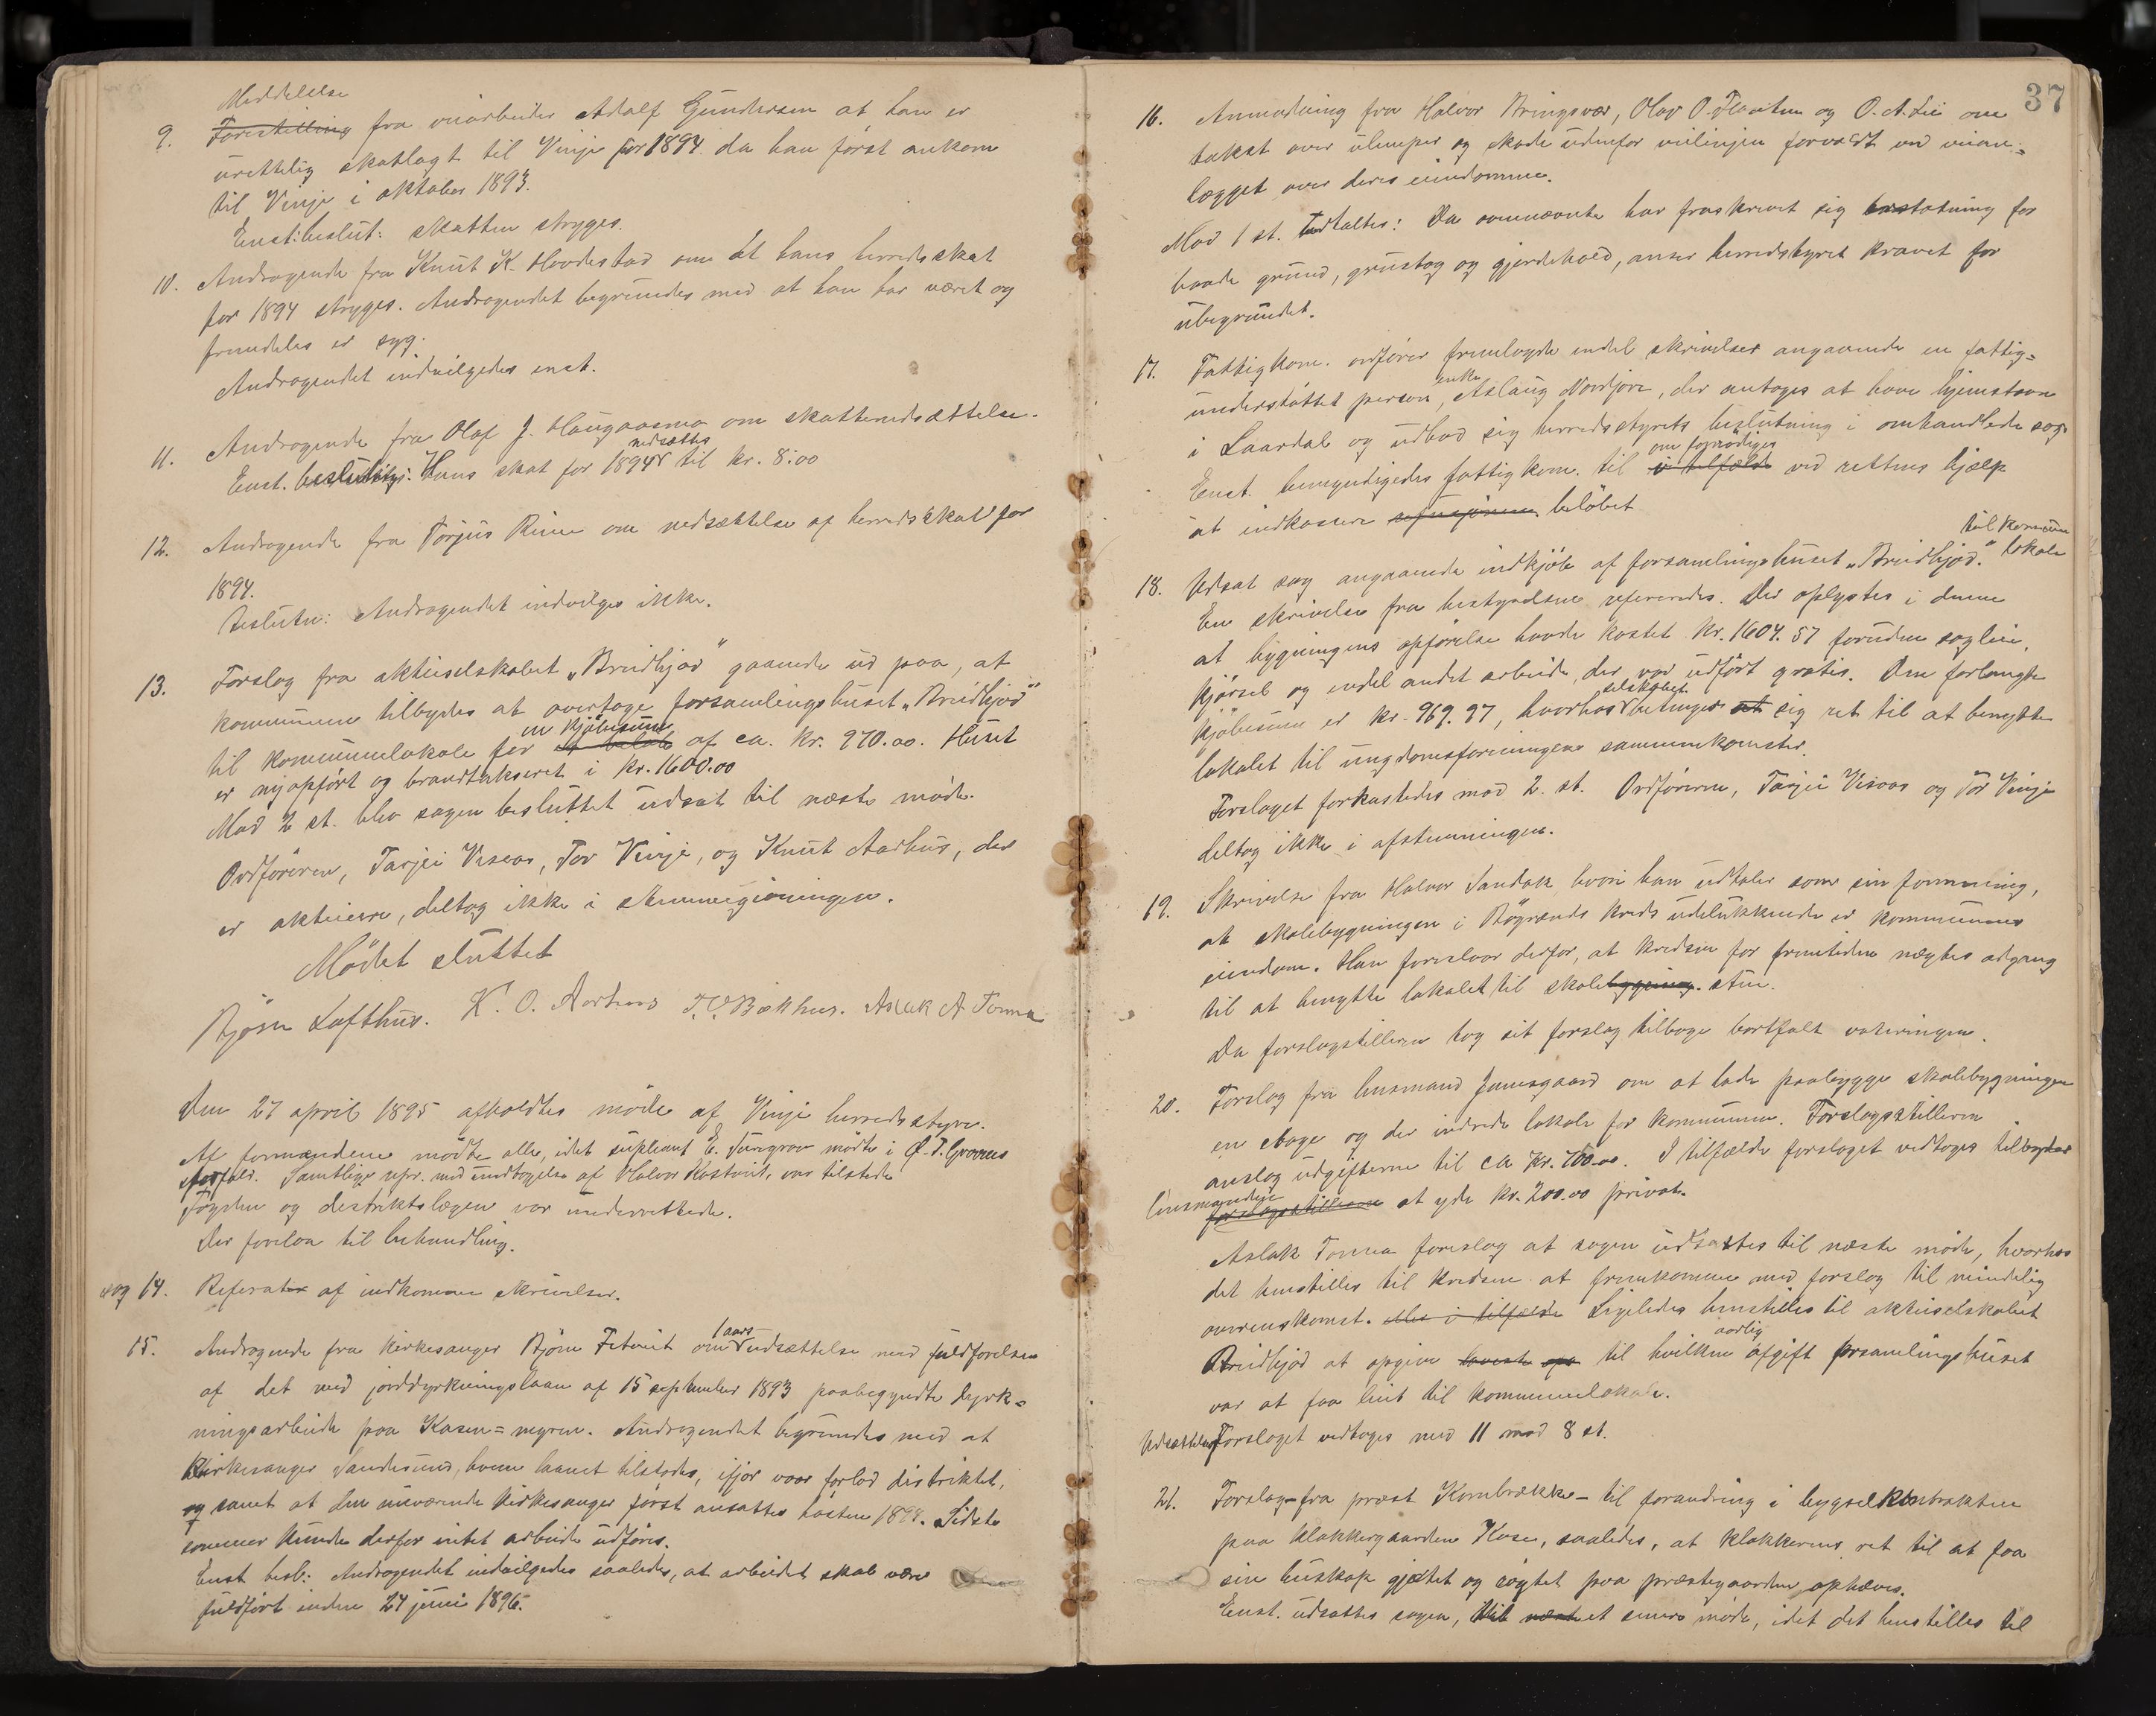 Meddelelse
9. Forestilling fra veiarbeider Adolf Gundersen at han er
urettelig skatlagt til Vinje for 1894 da han først ankom
til Vinje i oktober 1893.
Enst: beslut: skatten stryges.
10. Andragende fra Knut K. Hovdestad om at hans herredsskat
for 1894 stryges. Andragendet begrundes med at han har været og
fremdeles er syg.
Andragendet indvilgedes enst.
11. Andragende fra Olaf J. Haugaasmo om skattenedsættelse.
nedsættes
Enst. besluttes: Hans skat for 1894 til kr. 8.00
12. Andragende fra Torjus Rime om nedsættelse af herredsskat for
1894.
Beslutn: Andragendet indvilges ikke.
13. Forslag fra aktieselskabet „Breidbjod" gaaende ud paa, at
kommunen tilbydes at overtage forsamlingshuset „Breidbjod"
en kjøbesum
til kommunelokale for et beløb af ca. kr. 970.00. Huset
er nyopført og brandtakseret i kr. 1600.00
Mod 2 st. blev sagen besluttet udsat til næste møde.
Ordføreren, Tarjei Visaas, Tor Vinje, og Knut Aarhus, der
er aktieiere, deltog ikke i stemmegivningen.
Mødet sluttet
Bjørn Lofthus. K. O. Aarhus T. O. Bækhus. Aslak A Tonna
Den 27 april 1895 afholdtes møde af Vinje herredsstyre.
Af formændene mødte alle, idet supleant E. Jungrav mødte i Ø. T. Groven
forfald. Samtlige repr. med undtagelse af Halvor Kostveit, var tilstede
Fogden og destriktslægen var underrettede.
Der forelaa til behandling.
sag 14. Referater af indkomne skrivelser.
1 aars
15. Andragende fra kirkesanger Bjørn Fetveit om udsættelse med fuldførelsen
af det med jorddyrkningslaan af 15 september 1893 paabegyndte dyrk-
ningsarbeide paa Kosen=myren. Andragendet begrundes med at
Kirkesanger Sandesund, hvem laanet tilstodes, ifjor vaar forlod distriktet,
og samt at den nuværende kirkesanger først ansattes høsten 1894. Sidste
sommer kunde derfor intet arbeide udføres.
Enst besl: Andragendet indvilgedes saaledes, at arbeidet skal være
fuldført inden 24 juni 1896.
37
16. Anmodning fra Halvor Bringsvær, Olav O. Flaaten og O. A. Lie om
takst over ulemper og skade udenfor veilinjen forvoldt ved veian-
lægget over deres eiendomme.
Mod 1 st. udtaltes: Da ovennævnte har fraskrevet sig erstatning for
baade grund, grustag og gjerdehold, anser herredstyret kravet for
ubegrundet.
17. Fattigkom. ordfører fremlagde endel skrivelser angaaende en fattig-
enke
understøttet person, Aslaug Nordjore, der antages at have hjemstavn
i Laardal og udbad sig herredsstyrets beslutning i omhandlede sag
om fornødiges
Enst. bemyndigedes fattigkom. til i tilfælde ved rettens hjælp
at indkassere refusionen beløbet
til kommun
18. Udsat sag angaaende indkjøb af forsamlingshuset „Breidbjod." lokale
En skrivelse fra bestyrelsen refereredes. Der oplystes i denne
at bygningens opførelse havde kostet kr. 1604.57 foruden sagleie,
kjørsel og endel andet arbeide, der var udført gratis. Den forlangte
selskabet
kjøbesum er kr. 969.97, hvorhos betinges at sig ret til at benytte
lokalet til ungdomsforeningens sammenkomster.
Forslaget forkastedes mod 2. st. Ordføreren, Tarjei Visaas og Tor Vinje
deltog ikke i afstemningen.
19. Skrivelse fra Halvor Sandok hvori han udtaler som sin formening,
at skolebygningen i Bøgrænds kreds udelukkende er kommunens
eiendom. Han foreslaar derfor, at kredsen for fremtiden nægtes adgang
til at benytte lokalet til skolebygning. stue.
Da forslagstilleren tog sit forslag tilbage bortfalt voteringen.
20. Forslag fra lensmand Jamsgaard om at lade paabygge skolebygningen
en etage og der indrede lokale for kommunen. Forslagsstilleren
anslog udgifterne til ca kr. 700.00. I tilfælde forslaget vedtoges tilbydes
lensmanden
forslagsstilleren at yde kr. 200.00 privat.
Aslak Tonna foreslog at sagen udsættes til næste møde, hvorhos
det henstilles til kredsen at fremkomme med forslag til mindelig
overenskomst. eller i tilfælde Ligeledes henstilles til aktieselskabet
aarlig
Breidbjod at opgive laveste til hvilken afgift forsamlingshuset
var at faa leiet til kommunelokale.
Udsættelsesforslaget vedtoges med 11 mod 8 st.
21. Forslag fra præst Kornbrække - til forandring i bygselkontrakten
paa klokkergaarden Kose, saaledes, at klokkerens ret til at faa
sin buskap gjætet og røgtet paa præstegaarden ophæves.
Enst. udsattes sagen, til næste et senere møde, idet det henstilles til